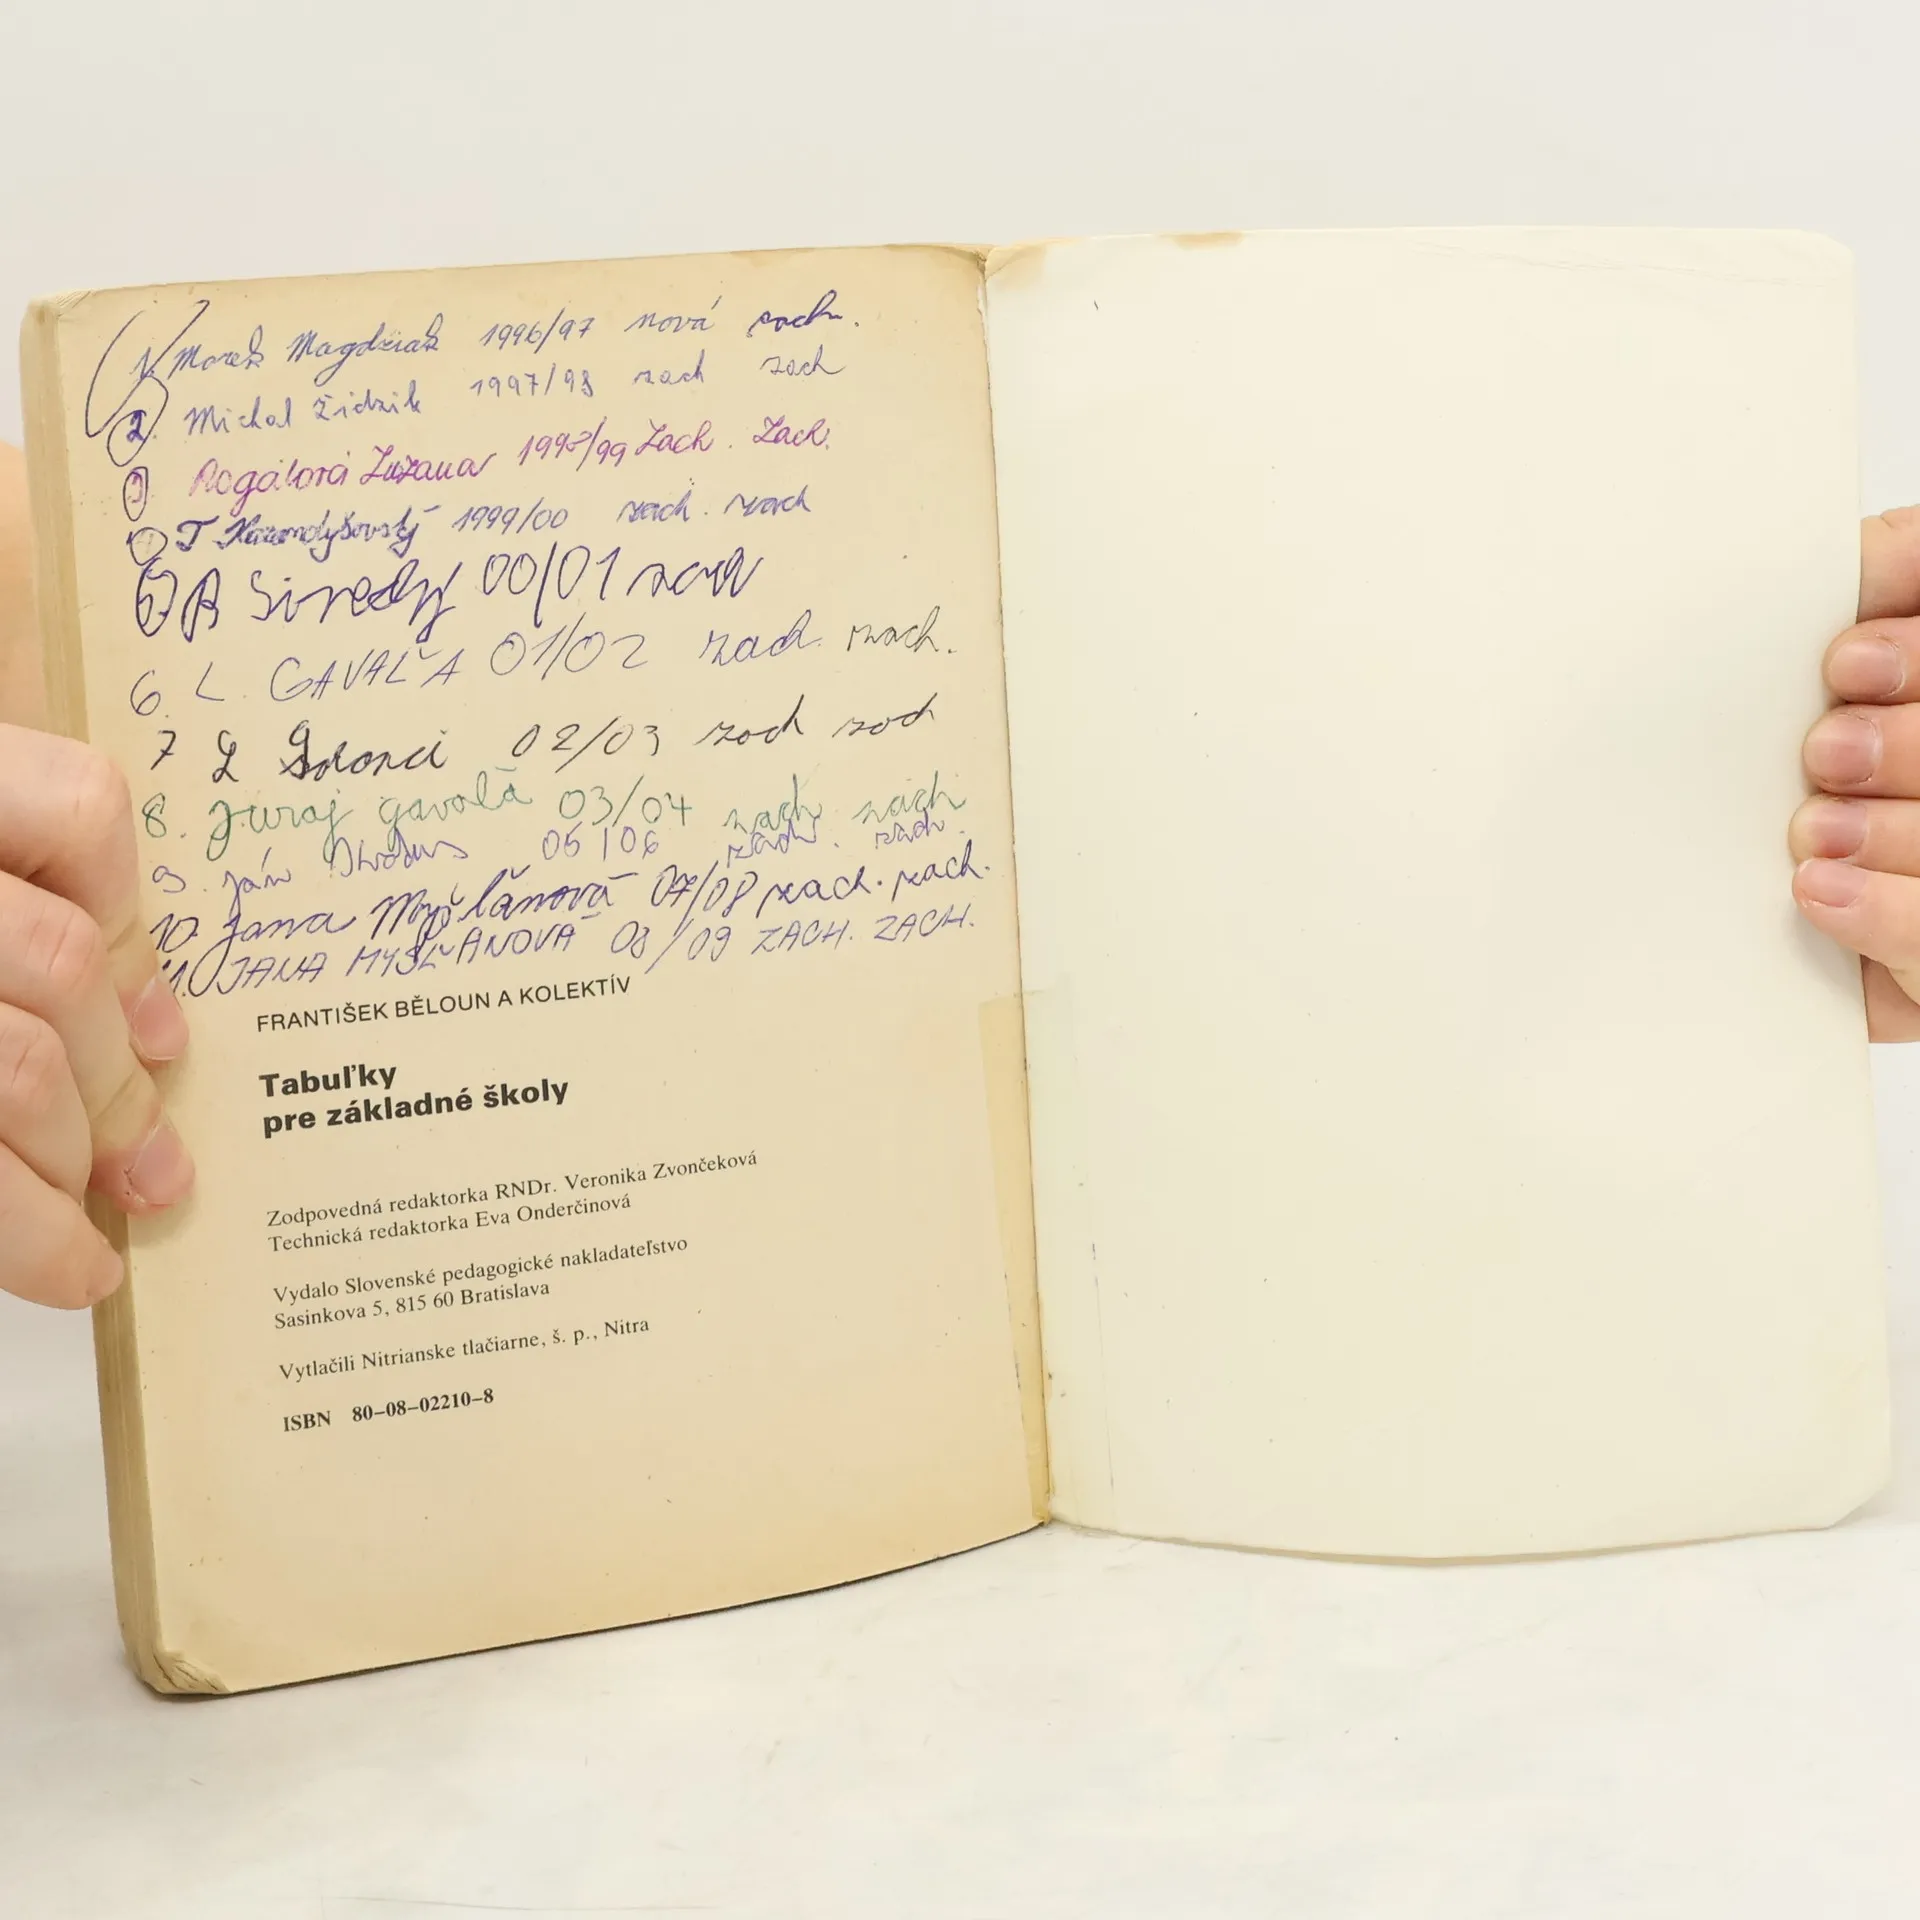 1. Marek Magdziak 1996/97 nová zach.
2. Michal Židzik 1997/98 zach zach
3 Rogálová Zuzana 1998/99 Zach. Zach.
4 T 1999/00 zach. zach
5 B Siredy 00/01 zach
6. L. GAVAĽA 01/02 zach. zach.
7 L 02/03 zach zach
8. Juraj gavaľa 03/04 zach zach
9. Ján 05/06 zach. zach.
10. Jana Mysľanová 07/08 zach. zach.
11. JANA MYSĽANOVÁ 08/09 ZACH. ZACH.
FRANTIŠEK BĚLOUN A KOLEKTÍV
Tabuľky
pre základné školy
Zodpovedná redaktorka RNDr. Veronika Zvončeková
Technická redaktorka Eva Onderčinová
Vydalo Slovenské pedagogické nakladateľstvo
Sasinkova 5, 815 60 Bratislava
Vytlačili Nitrianske tlačiarne, š. p., Nitra
ISBN 80–08–02210–8